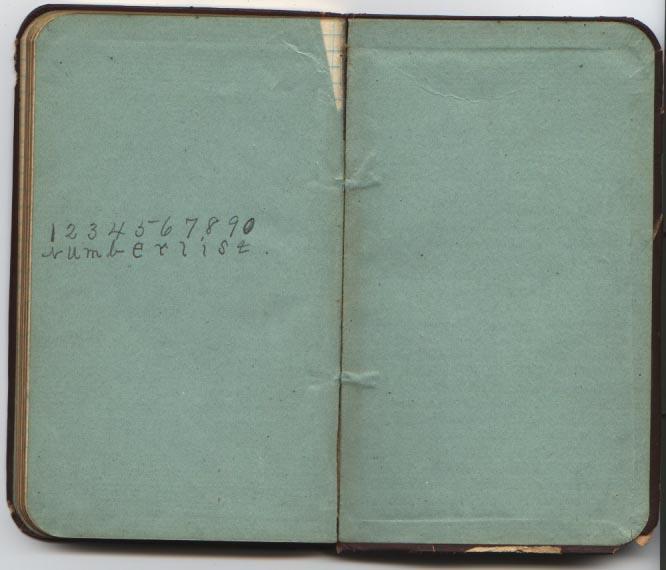 1 2 3 4 5 6 7 8 9 0
N u m b e r l i s t .